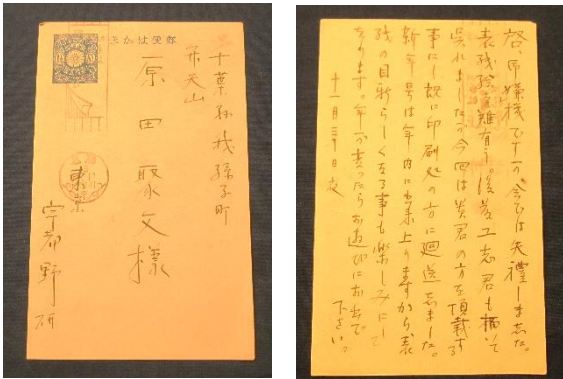 郵便はかき
千葉縣我孫子町
弁天山
原田聚文様
東京
宇都野研
啓、御機嫌よう。会では失禮しました。
表紙絵有難う。後藤工志君も描いて
呉れましたが今回は貴君の方を頂戴する
事にし既に印刷処の方に廻送しました。
新年号は年内に出来上りますから表
紙の目新らしくなる事も楽しみにして
をります。年が変ったらお遊びにお出で
下さい。
十一月三十日夜